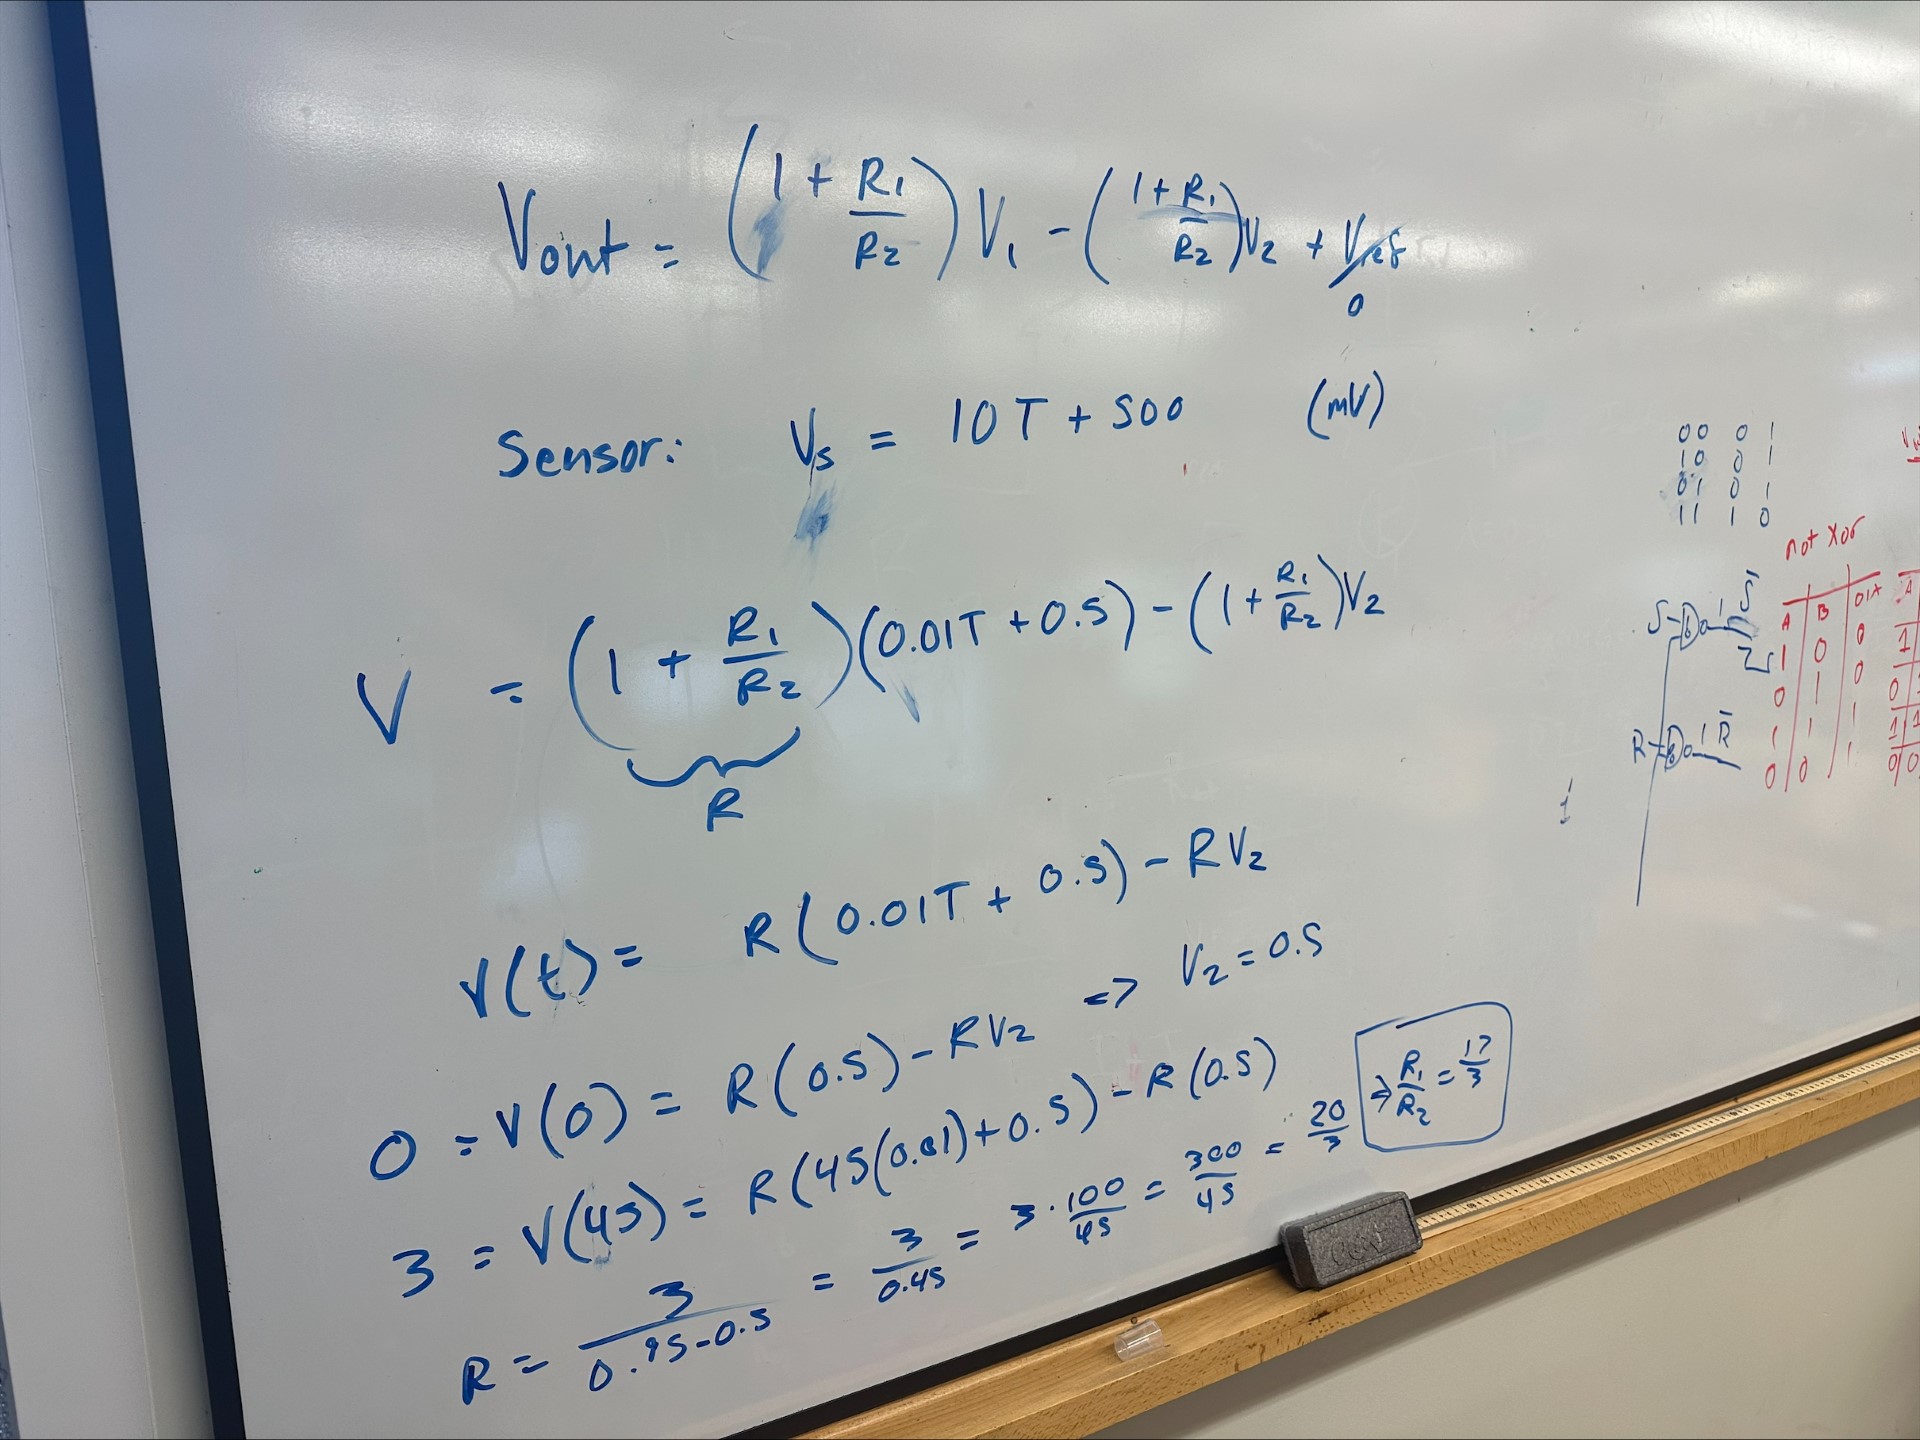 Vout = (1 + R1/R2) V1 - (1 + R1/R2) V2 + Vref
0
Sensor: Vs = 10T + 500 (mV)
V = (1 + R1/R2)(0.01T + 0.5) - (1 + R1/R2)V2
R
V(t) = R(0.01T + 0.5) - RV2
0 = V(0) = R(0.5) - RV2 => V2 = 0.5
3 = V(45) = R(45(0.01) + 0.5) - R(0.5)
R = 3/(0.95-0.5) = 3/0.45 = 3·100/45 = 300/45 = 20/3 => R1/R2 = 17/3
00 0 1
10 0 1
01 0 1
11 1 0
not xor
A B
1 0 0
0 1 0
1 1 1
0 0 1
S 1 S̄
R 1 R̄
A
1
0
1 1
0 0